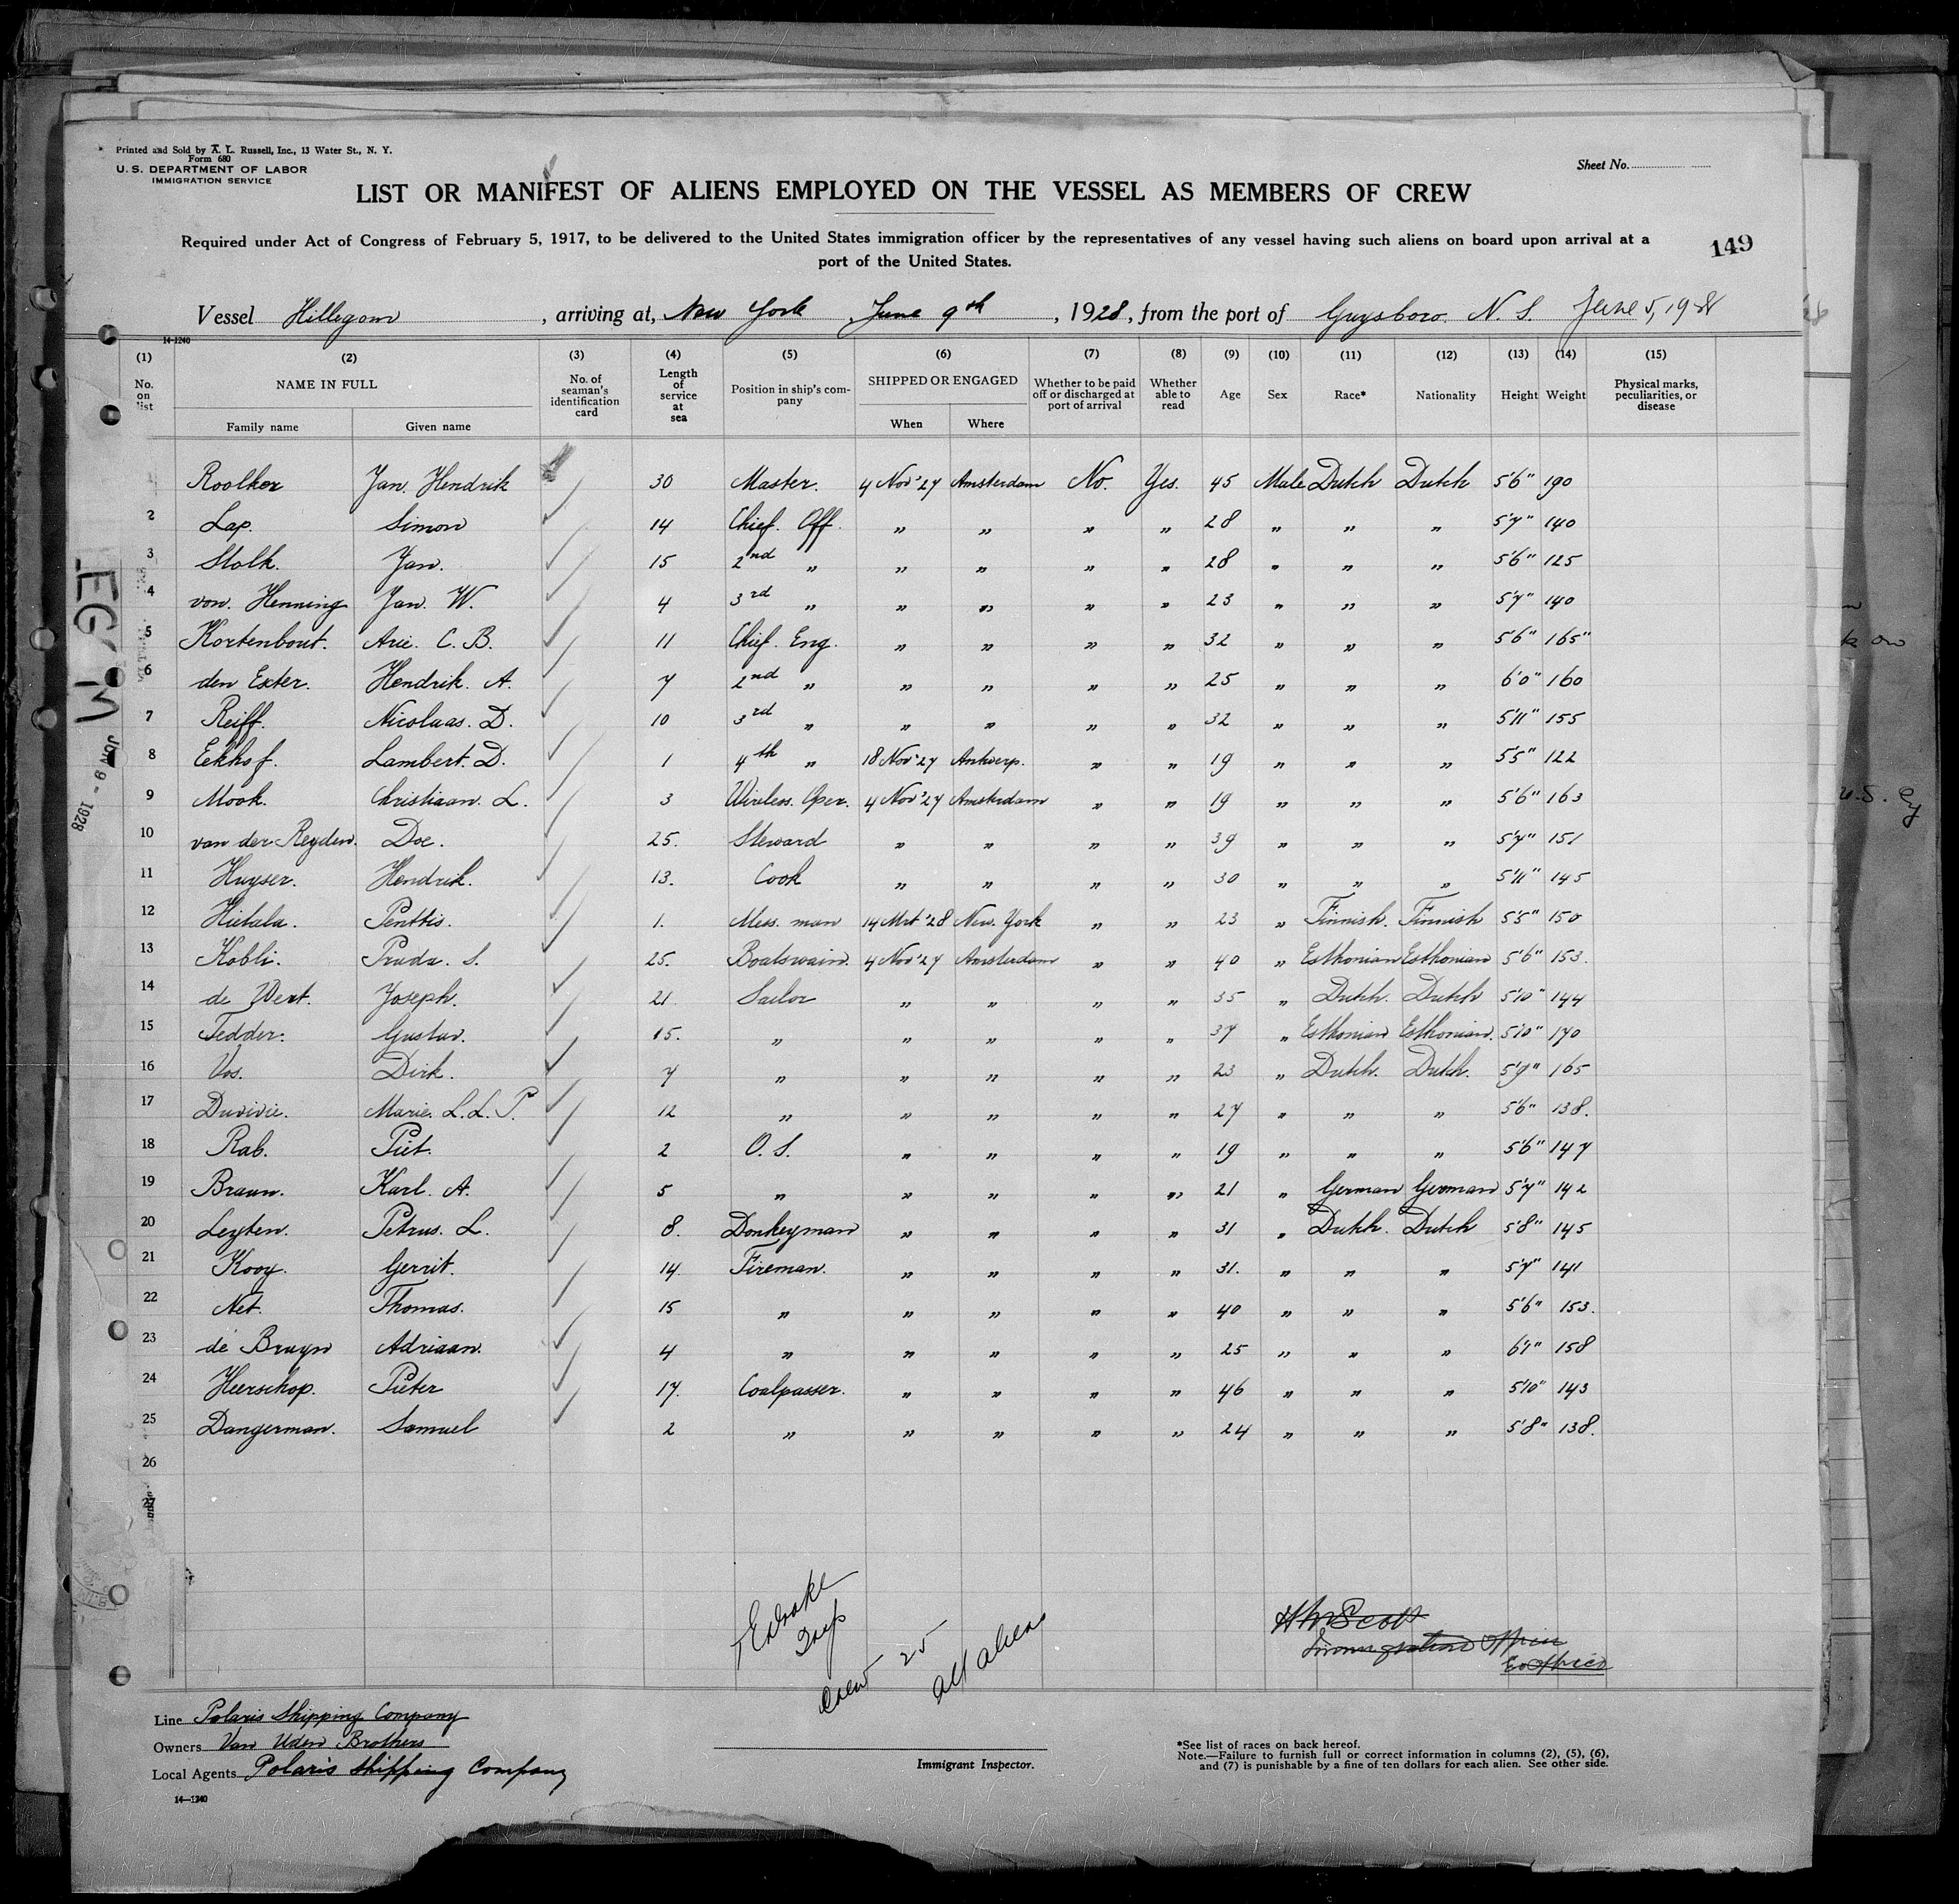 Printed and Sold by A. L. Russell, Inc., 13 Water St., N. Y.
Form 680
U. S. DEPARTMENT OF LABOR
IMMIGRATION SERVICE
Sheet No.
LIST OR MANIFEST OF ALIENS EMPLOYED ON THE VESSEL AS MEMBERS OF CREW
Required under Act of Congress of February 5, 1917, to be delivered to the United States immigration officer by the representatives of any vessel having such aliens on board upon arrival at a
port of the United States.
149
Vessel Hillegom, arriving at, New York June 9th, 1928, from the port of Guysboro. N. S. June 5, 1928
14-1240
(1) (2) (3) (4) (5) (6) (7) (8) (9) (10) (11) (12) (13) (14) (15)
No. on list NAME IN FULL No. of seaman's identification card Length of service at sea Position in ship's company SHIPPED OR ENGAGED Whether to be paid off or discharged at port of arrival Whether able to read Age Sex Race* Nationality Height Weight Physical marks, peculiarities, or disease
Family name Given name When Where
Roolker Jan. Hendrik 30 Master. 4 Nov '27 Amsterdam No. Yes. 45 Male Dutch Dutch 5'6" 190
2 Lap. Simon 14 Chief. Off. " " " " 28 " " " 5'7" 140
3 Stolk. Jan. 15 2nd " " " " " 28 " " " 5'6" 125
4 von. Henning Jan. W. 4 3rd " " " " " 23 " " " 5'7" 140
5 Kortenbout. Arie. C. B. 11 Chief. Eng. " " " " 32 " " " 5'6" 165"
6 den Exter. Hendrik. A. 7 2nd " " " " " 25 " " " 6'0" 160
7 Reiff. Nicolaas. D. 10 3rd " " " " " 32 " " " 5'11" 155
8 Eekhof. Lambert. D. 1 4th " 18 Nov '27 Antwerp. " " 19 " " " 5'5" 122
9 Mook. Christiaan. L. 3 Wireless. Oper. 4 Nov '27 Amsterdam " " 19 " " " 5'6" 163
10 van der Reyden. Doe. 25. Steward " " " " 39 " " " 5'7" 151
11 Huyser. Hendrik. 13. Cook " " " " 30 " " " 5'11" 145
12 Hietala. Penttis. 1. Mess. man 14 Mrt '28 New. York " " 23 " Finnish. Finnish 5'5" 150
13 Kobli. Pruda. S. 25. Boatswain. 4 Nov '27 Amsterdam " " 40 " Esthonian Esthonian 5'6" 153.
14 de Wert. Joseph. 21. Sailor " " " " 35 " Dutch. Dutch 5'10" 144
15 Tedder. Gustav. 15. " " " " " 37 " Esthonian Esthonian. 5'10" 170
16 Vos. Dirk. 7 " " " " " 23 " Dutch. Dutch. 5'9" 165
17 Duvivie. Marie. L. L. P. 12 " " " " " 27 " " " 5'6" 138.
18 Rab. Piet. 2 O. S. " " " " 19 " " " 5'6" 147
19 Braun. Karl. A. 5 " " " " " 21 " German German 5'7" 142
20 Leyten. Petrus. L. 8. Donkeyman " " " " 31 " Dutch. Dutch 5'8" 145
21 Kooy. Gerrit. 14. Fireman. " " " " 31. " " " 5'7" 141
22 Net. Thomas. 15 " " " " " 40 " " " 5'6" 153.
23 de Bruyn Adriaan. 4 " " " " " 25 " " " 6'1" 158
24 Heerschop. Pieter 17. Coalpasser. " " " " 46 " " " 5'10" 143
25 Dangerman. Samuel 2 " " " " " 24 " " " 5'8" 138.
26
27
JUN 9 - 1928
Insp
Crew 25
all aliens
H W Scott
Immigration Officer
Line Polaris Shipping Company
Owners Van Uden Brothers
Local Agents Polaris Shipping Company
14-1240
Immigrant Inspector.
*See list of races on back hereof.
Note.—Failure to furnish full or correct information in columns (2), (5), (6),
and (7) is punishable by a fine of ten dollars for each alien. See other side.